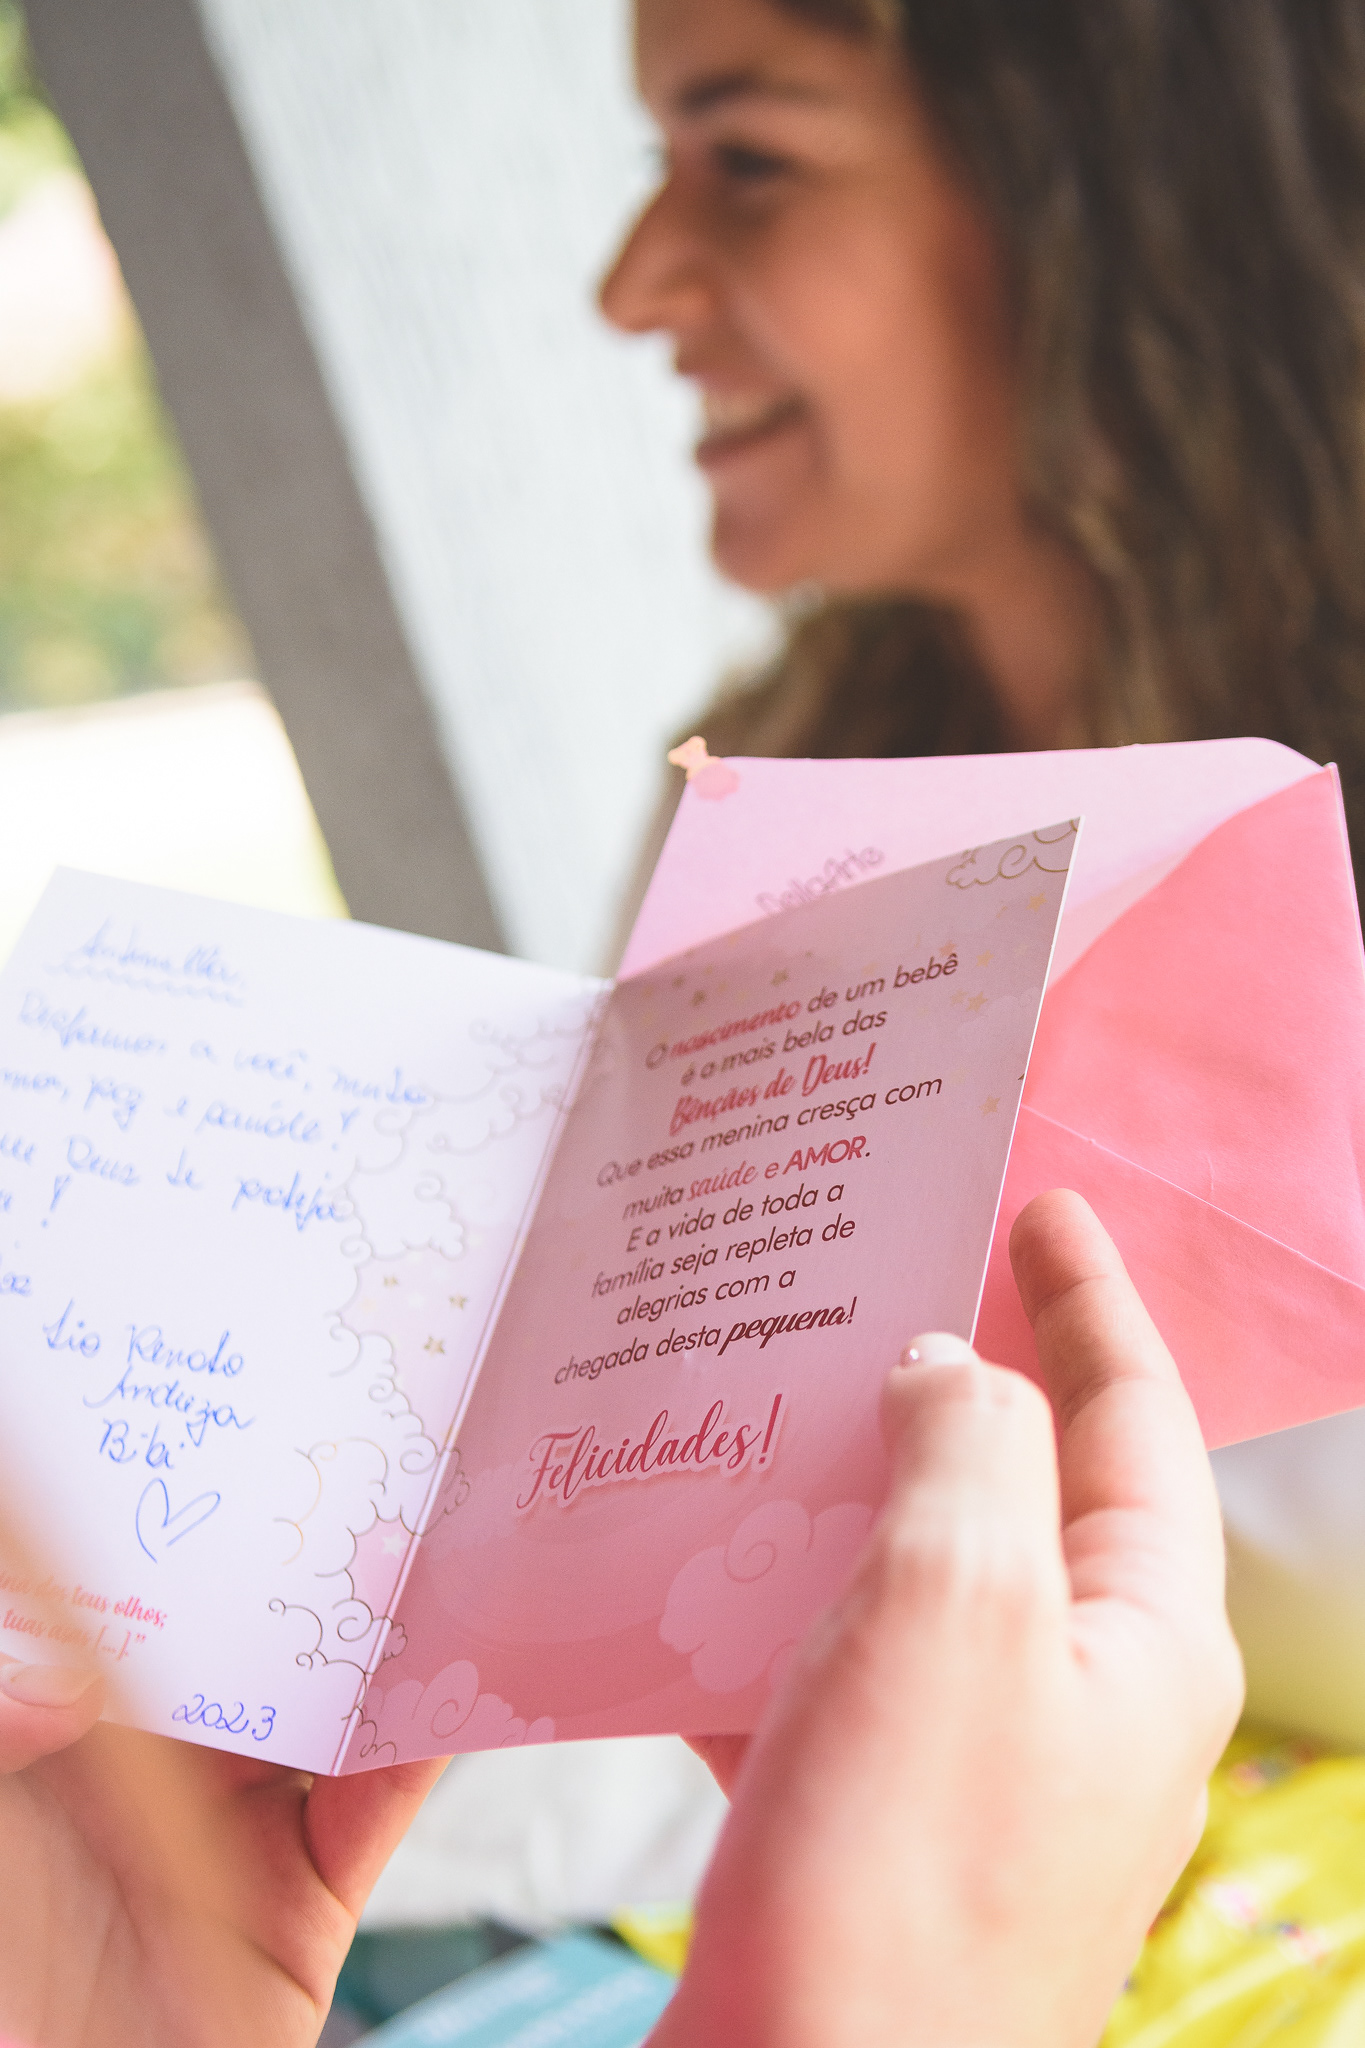 Antonella
a você, muito
paz e saúde!
Deus te proteja
!
tio Renato
Andreza
Bibi
dos teus olhos;
tuas asas [...]."
2023
BelaArte
O nascimento de um bebê
é a mais bela das
Bênçãos de Deus!
Que essa menina cresça com
muita saúde e AMOR.
E a vida de toda a
família seja repleta de
alegrias com a
chegada desta pequena!
Felicidades!